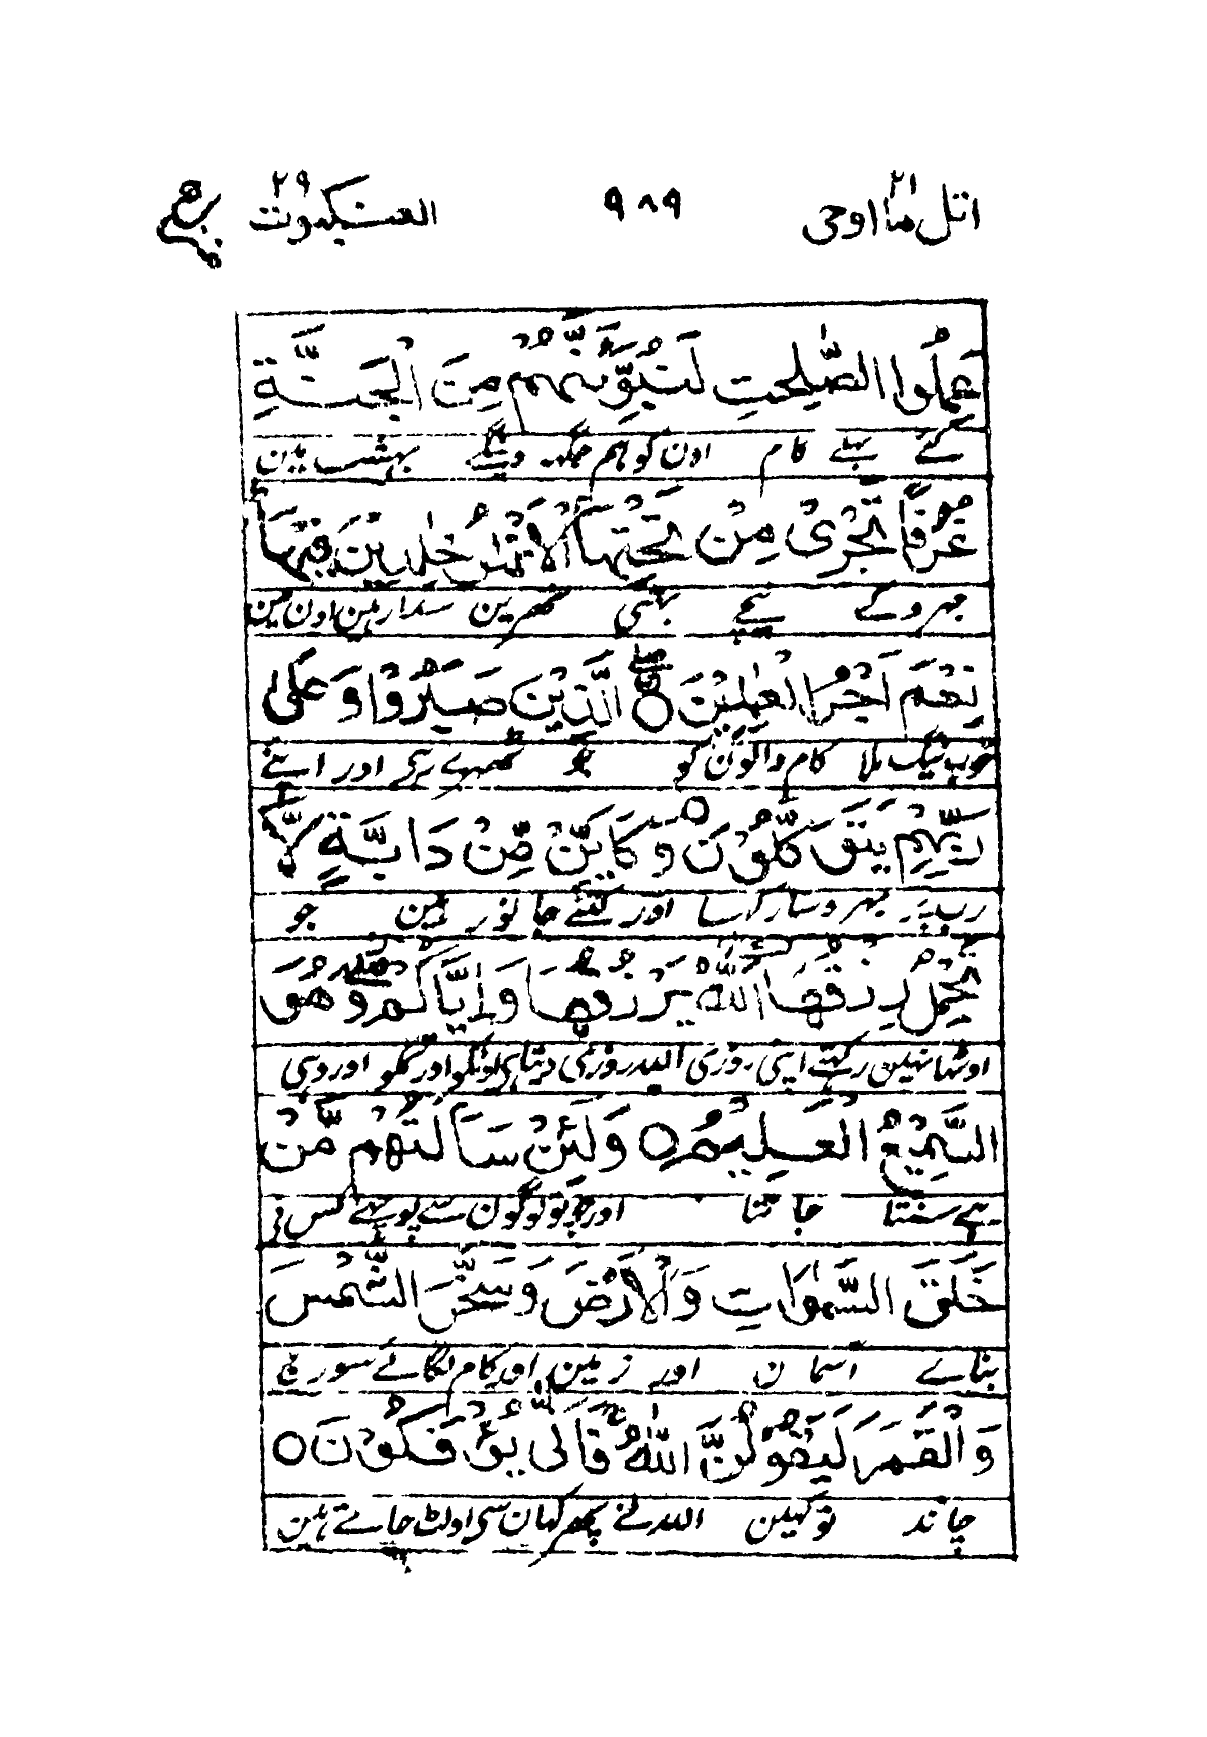 اتل ما اوحی ۲۱ ۹۸۹ العنکبوت ۲۹
عَمِلُوا الصّٰلِحٰتِ لَنُبَوِّئَنَّهُمْ مِنَ الْجَنَّةِ
کئے بھلے کام اون کو ہم جگہہ دینگے بہشت مین
غُرَفًا تَجْرِیْ مِنْ تَحْتِهَا الْاَنْهٰرُ خٰلِدِیْنَ فِیْهَا
جھروکے نیچے بہتی نھرین سدا رہین اون مین
نِعْمَ اَجْرُ الْعٰمِلِیْنَ ○ الَّذِیْنَ صَبَرُوْا وَ عَلٰی
خوب نیک ملا کام والون کو جو ٹھہرے رہی اور اپنے
رَبِّهِمْ یَتَوَكَّلُوْنَ ○ وَ كَاَیِّنْ مِّنْ دَابَّةٍ لَّا
رب پر بھروسا رکہا اور کتنے جانور ہین جو
تَحْمِلُ رِزْقَهَا اللّٰهُ یَرْزُقُهَا وَ اِیَّاكُمْ وَ هُوَ
اوٹھا نہین رکہتے اپنی روزی اللہ روزی دیتا ہی اونکو اور تمکو اور وہی
السَّمِیْعُ الْعَلِیْمُ ○ وَ لَئِنْ سَاَلْتَهُمْ مَّنْ
ہے سنتا جانتا اور جو تو لوگون سے پوچہے کس نی
خَلَقَ السَّمٰوٰتِ وَ الْاَرْضَ وَ سَخَّرَ الشَّمْسَ
بنائے آسمان اور زمین اور کام لگائے سورج
وَ الْقَمَرَ لَیَقُوْلُنَّ اللّٰهُ فَاَنّٰی یُؤْفَكُوْنَ ○
چاند تو کہین اللہ نے پھر کہان سی اولٹ جاتے ہین